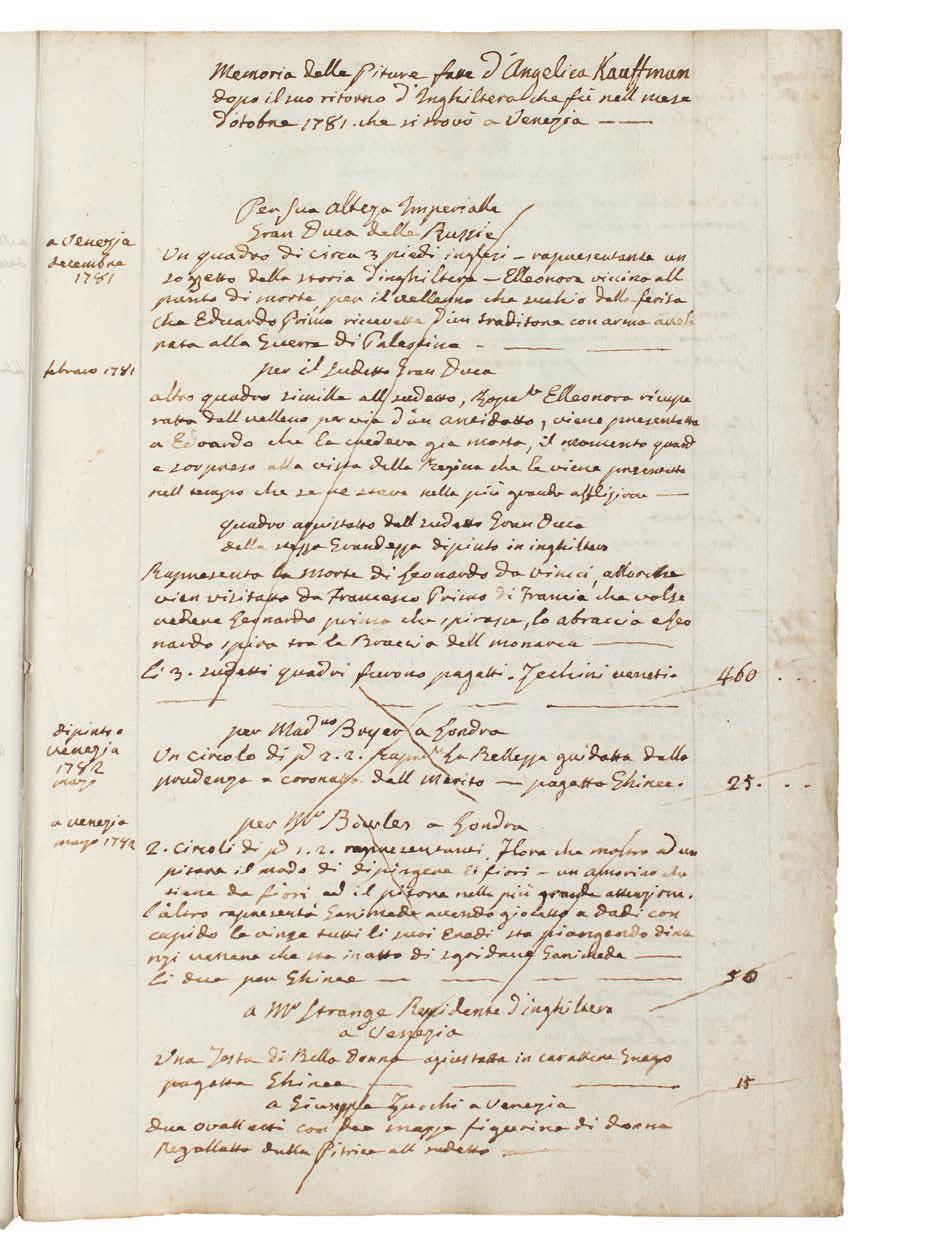 Memoria delle Piture fatte d'Angelica Kauffman
dopo il suo ritorno d'Inghilterra che fù nell mese
d'otobre 1781. che si trovò a Venezia
Per Sua Altezza Imperialle
Gran Duca delle Russie
a Venezia
decembre
1781
Un quadro di circa 3 piedi inglesi - rapresentante un
sogetto della storia d'inghiltera - Elleonora vicino all
punto di morte, per il velleno che suchio dalla ferita
che Eduardo Primo ricevette d'un traditore con arma avele
nata alla Guerra di Palestina -
febraro 1781
per il sudetto Gran Duca
altro quadro simille all sudetto, Elleonora ricupe
ratta dall velleno per via d'un antidotto, viene presentatta
a Edoardo che la credeva gia morta, il momento quand
e sorpreso alla vista della Regina che le viene presentata
nell tempo che se ne stava nella più grande afflizione
quadro aquistatto dall sudetto Gran Duca
della stessa Grandezza dipinto in inghiltera
Rapresenta la Morte di Leonardo da Vinci, allorche
vien visitatto da Francesco Primo di Francia che volse
vedere Leonardo prima che spirasse, lo abraccia e Leo
nardo spira tra le Braccia dell monarca
li 3. sudetti quadri furono pagatti. Zechini veneti. 460
dipinto a
venezia
1782
marzo
per Mad.ma Bryer a Londra
Un circolo di pd 2. 2. La Bellezza guidatta dalla
prudenza e coronatta dall Merito - pagatto Ghinee. 25.
a venezia
marzo 1782
per Mr Bowles a Londra
2. circoli di pd 1. 2. rapresentanti. Flora che mostra ad un
pitore il modo di dipingere li fiori - un amorino che
tiene da fiori ed il pitore nella più grande attenzione.
l'altro rapresenta Ganimede avendo giocatto a dadi con
cupido le vinge tutti li suoi Dardi sta piangendo dina
nzi venere che sta in atto di sgridare Ganimede
li due per Ghinee 50
a Mr Strange Residente d'inghiltera
a Venezia
Una Testa di Bella Donna agiustatta in carattere Grego
pagatta Ghinee 15
a Giuseppe Zucchi a Venezia
due ovalletti con due mezze figurine di donna
Regallatte dalla Pitrice all sudetto